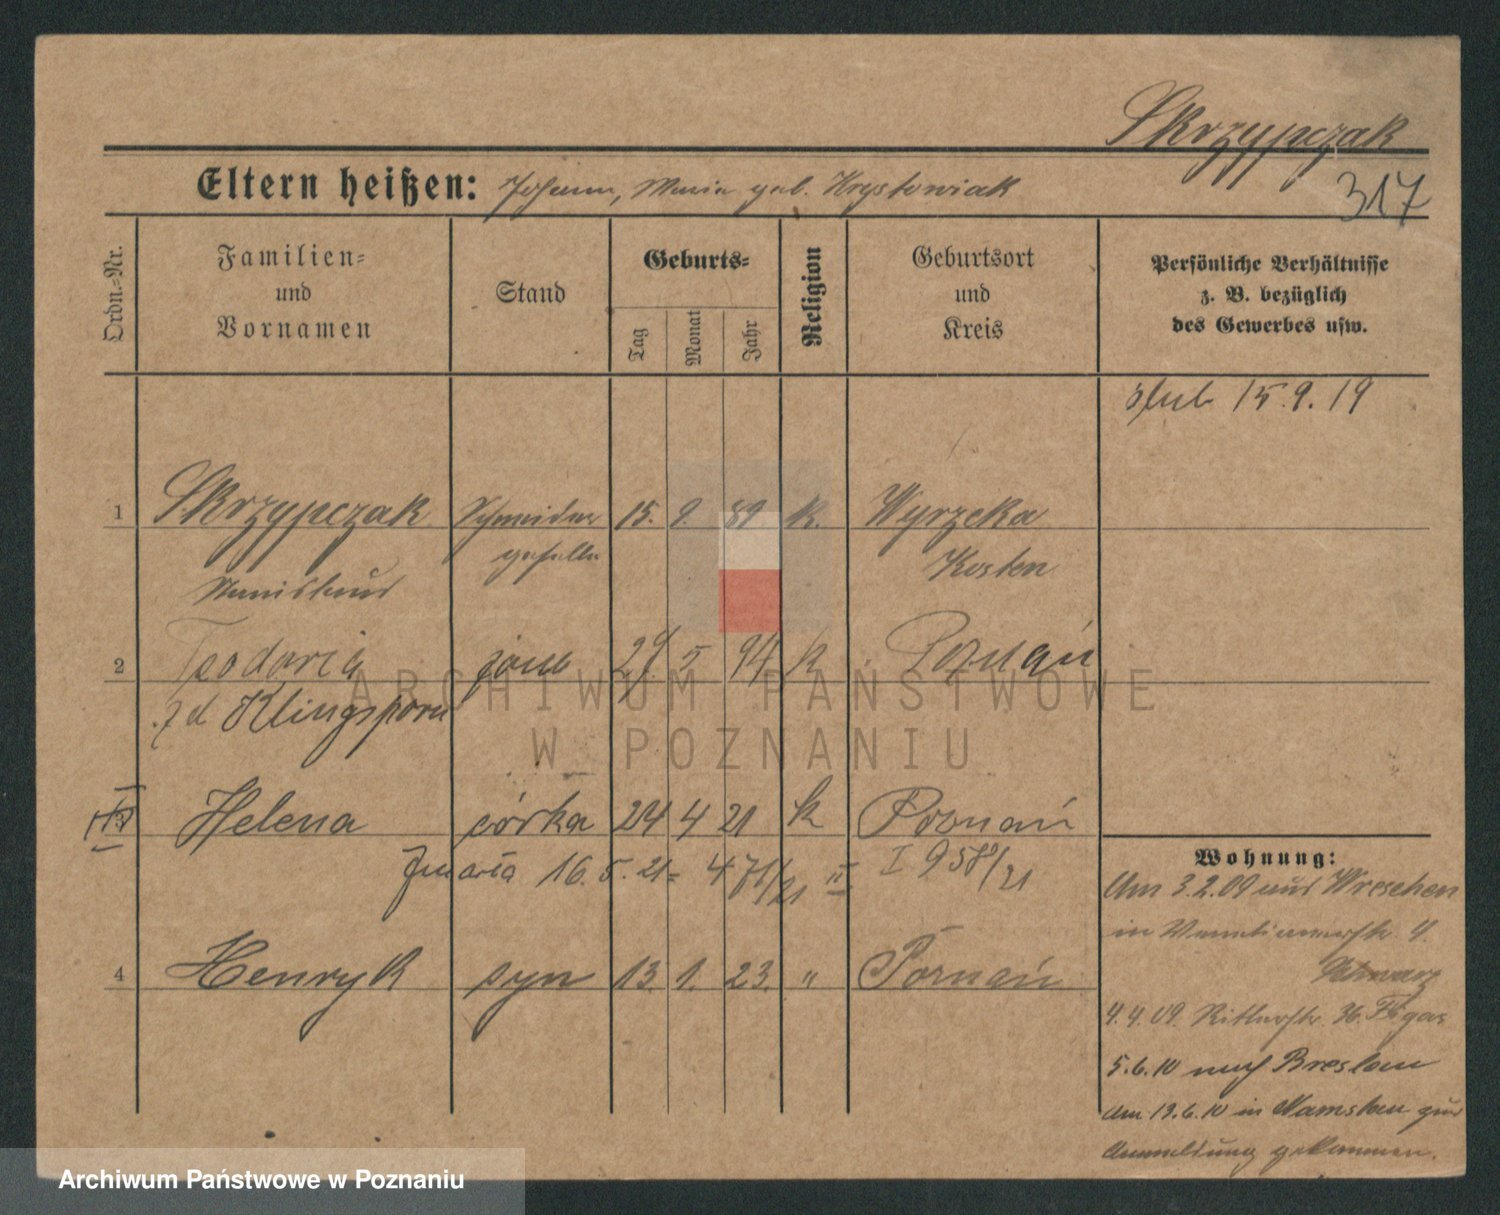 Skrzypczak
Eltern heißen: Johann, Maria geb. Krystowiak
317
Ordn.-Nr.
Familien-
und
Vornamen
Stand
Geburts-
Tag
Monat
Jahr
Religion
Geburtsort
und
Kreis
Persönliche Verhältnisse
z. B. bezüglich
des Gewerbes usw.
ślub 15.9.19
1 Skrzypczak Schneider 15. 9. 89 k. Wyrzeka
geselle Kosten
Stanislaus
2 Teodozia żona 29. 5 94 k Poznań
z d Klingsporn
Helena córka 24 4 21 k Poznań
16.5.21 = 471/21 II I 958/21
4 Henryk syn 13. 1. 23. " Poznań
Wohnung:
Am 3.2.09 aus Wreschen
in 4.
Schwarz
4.4.09. Ritterstr. 36. Figas
5.6.10 nach Breslau
Am 13.6.10 in Namslau zur
Anmeldung gekommen.
ARCHIWUM PAŃSTWOWE
W POZNANIU
Archiwum Państwowe w Poznaniu